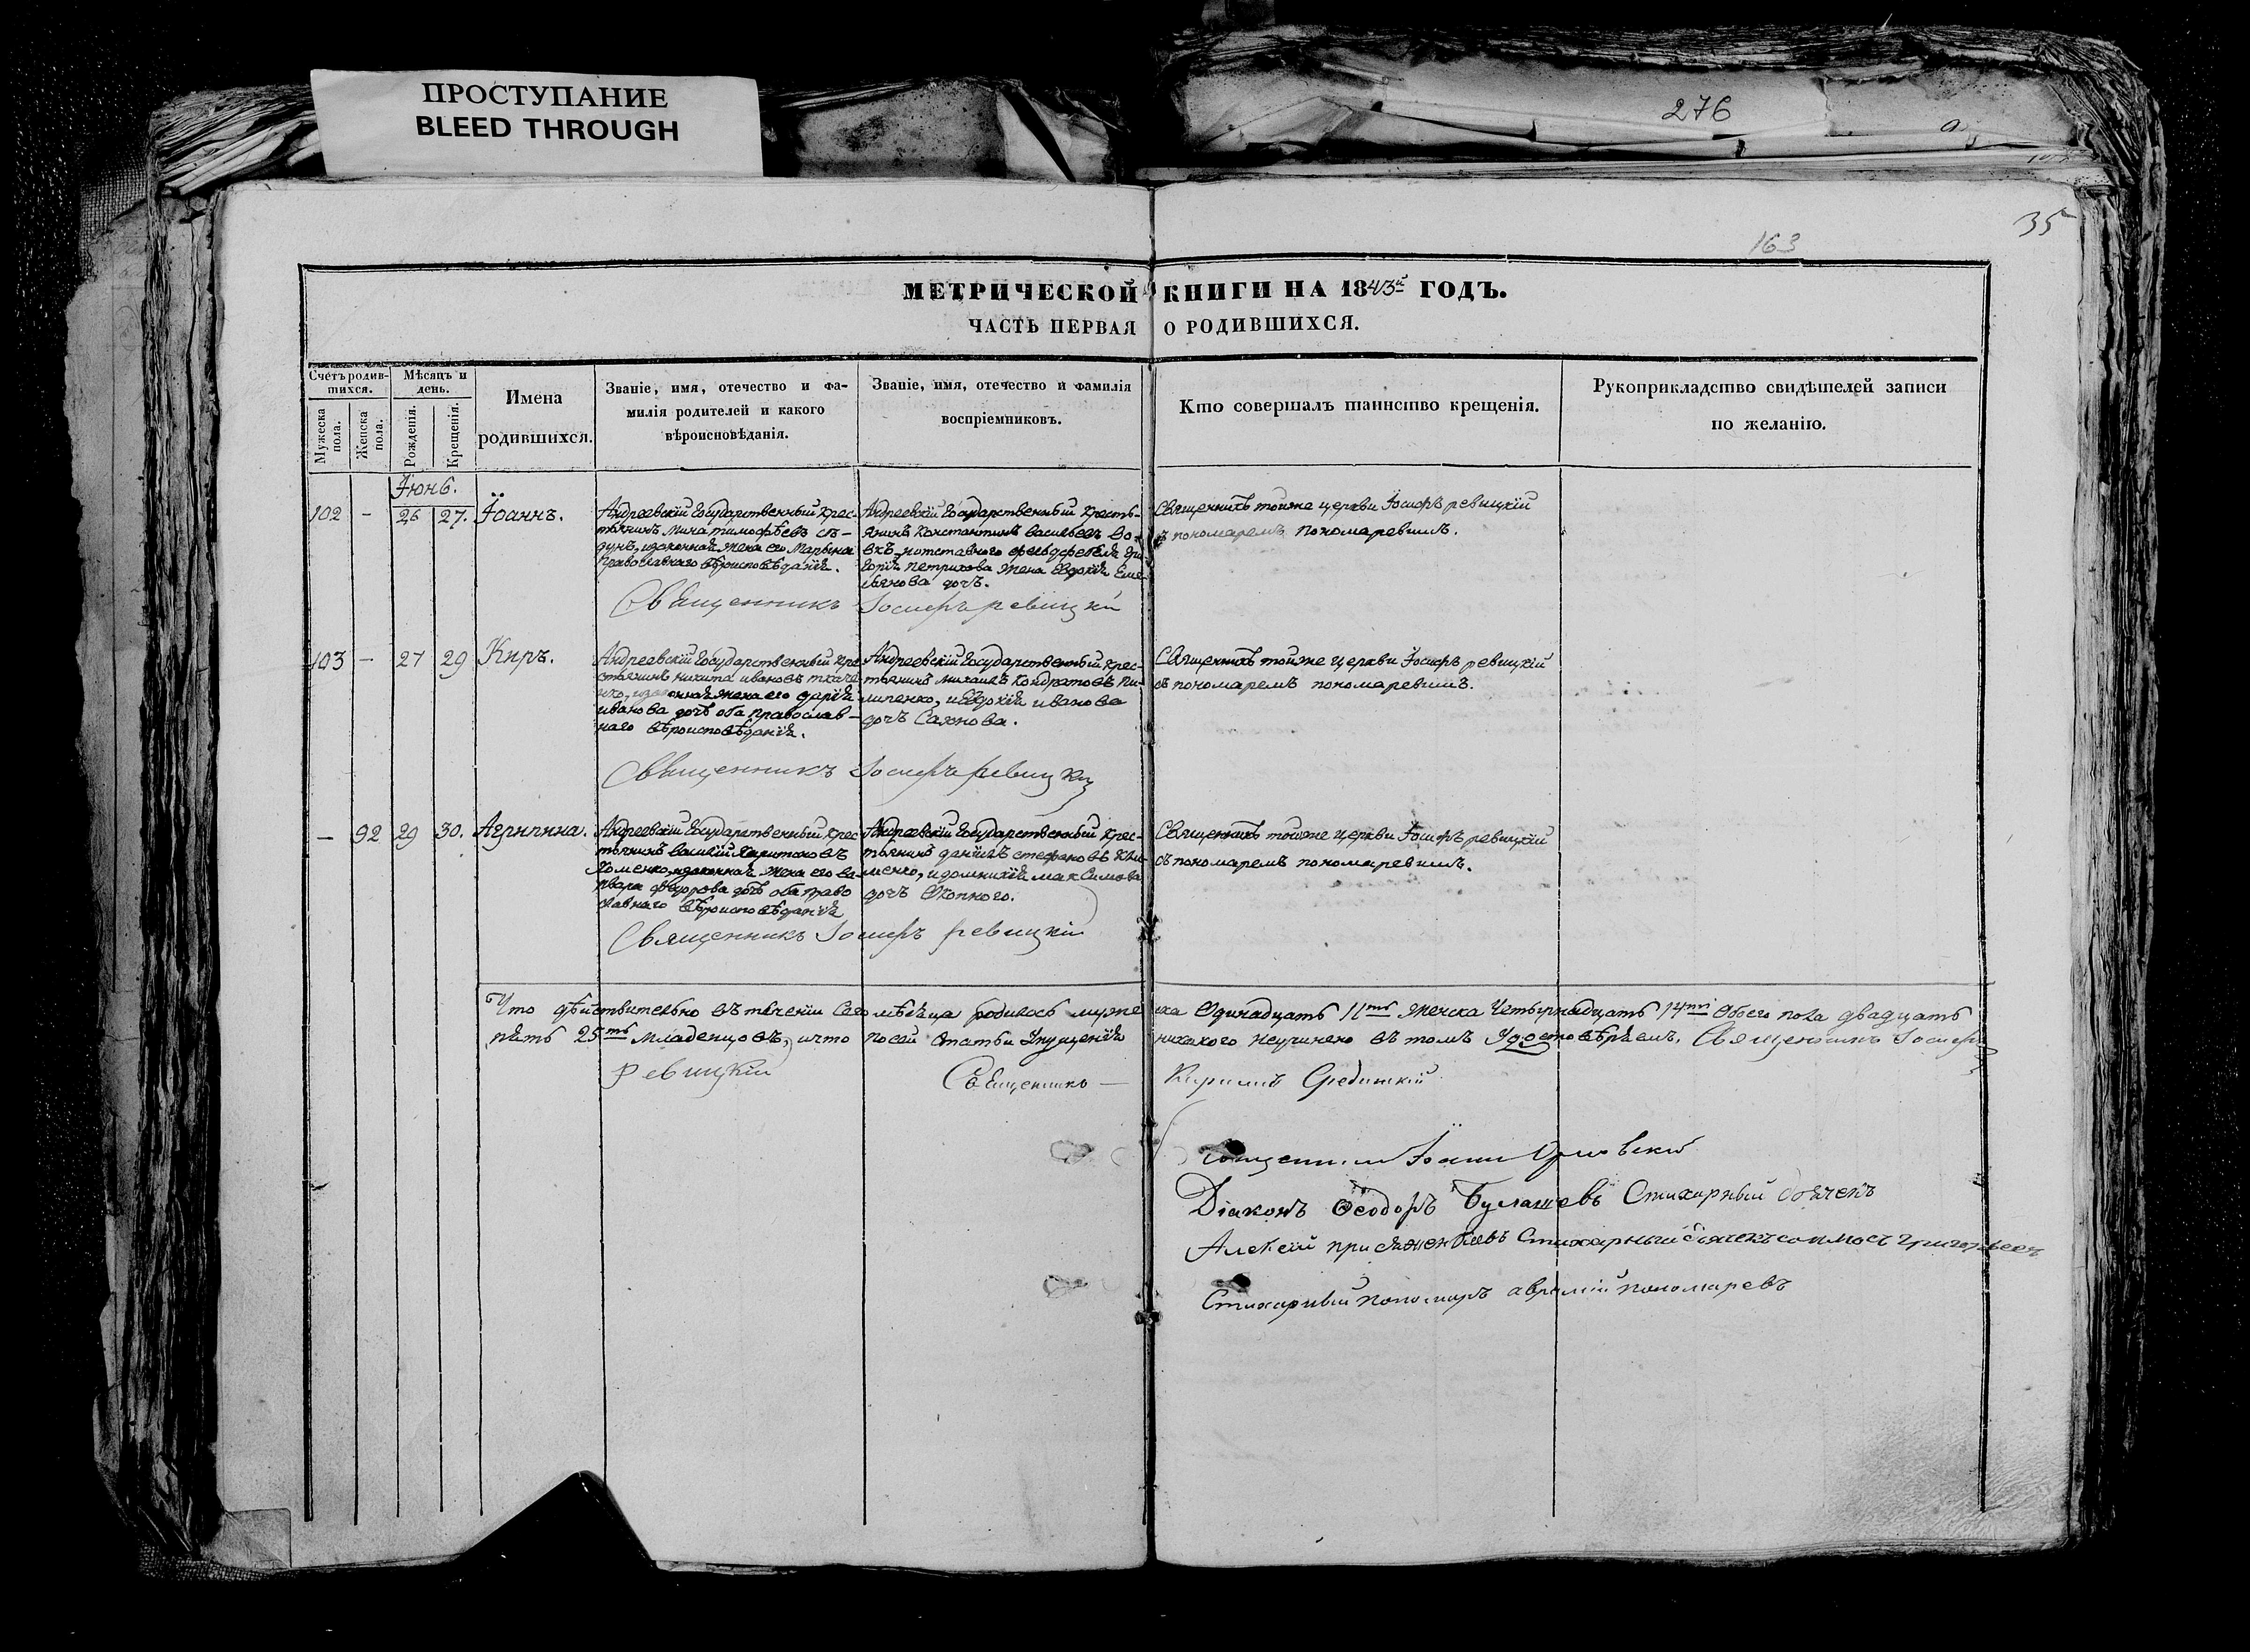 ПРОСТУПАНИЕ
BLEED THROUGH
276
35
163
МЕТРИЧЕСКОЙ КНИГИ НА 1843й ГОДЪ.
ЧАСТЬ ПЕРВАЯ О РОДИВШИХСЯ.
Счетъ родив-
шихся.
Мужеска пола.
Женска пола.
Мѣсяцъ и
день.
Рожденія.
Крещенія.
Имена
родившихся.
Званіе, имя, отечество и фа-
милія родителей и какого
вѣроисповѣданія.
Званіе, имя, отечество и фамилія
воспріемниковъ.
Кто совершалъ таинство крещенія.
Рукоприкладство свидѣтелей записи
по желанію.
Іюнь.
102 - 26 27. Іоаннъ.
Андреевскій Государственный крес-
тьянинъ Мина тимофѣевъ
законная жена его Марьяна
Православнаго вѣроисповѣданія.
Андреевскій Государственный кресть-
янинъ Константинъ васильевъ
отставного фельдфебеля гри-
горія петрихова жена Евдокія Еме-
льянова дочь.
Священникъ тойже церкви Іосифъ ревицкій
съ пономаремъ пономаревимъ.
Священникъ Іосифъ ревицкій
103 - 27 29 Киръ.
Андреевскій Государственный кре-
стьянинъ никита ивановъ ткаче
нко, законная жена его дарія
иванова дочь оба православ-
наго вѣроисповѣданія.
Андреевскій Государственный крес-
тьянинъ михаилъ Кондратовъ Пи-
липенко, и Евдокія иванова
дочь Сахнова.
Священникъ тойже церкви Іосифъ ревицкій
съ пономаремъ пономаревимъ.
Священникъ Іосифъ ревицкій
- 92 29 30. Агрипина.
Андреевскій Государственный крес-
тьянинъ василій харитоновъ
Хоменко, законная жена его ва-
рвара федорова дочь оба право
славнаго вѣроисповѣданія
Андреевскій Государственный крес-
тьянинъ даніилъ стефановъ Кли-
менко, и домникія максимова
дочь
Священникъ тойже церкви Іосифъ ревицкій
съ пономаремъ пономаревимъ.
Священникъ Іосифъ ревицкій
Что дѣйствительно въ теченіи сего мѣсяца родилось муже ска Одинадцать 11ть женска Четырнадцать 14ть Обоего пола двадцать
пять 25ть младенцовъ, и что по сей статьи Упущенія никакого неучинено въ томъ Удостовѣряемъ. Священникъ Іосифъ
Ревицкій
Священникъ - Кирилъ
Священникъ Іоаннъ Орловскій
Діаконъ Ѳеодоръ Булашевъ Стихарный дьячекъ
Алексій Стихарный дьячекъ Григорьевъ
Стихарный пономарь аврамій пономаревъ